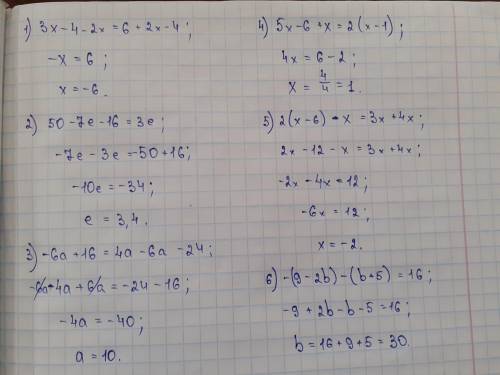 1) 3x-4-2x=6+2x-4;
-x=6;
x=-6.
2) 50-7e-16=3e;
-7e-3e=-50+16;
-10e=-34;
e=3,4.
3) -6a+16=4a-6a-24;
-6a-4a+6a=-24-16;
-4a=-40;
a=10.
4) 5x-6+x=2(x-1);
4x=6-2;
x=4/4=1.
5) 2(x-6)-x=3x+4x;
2x-12-x=3x+4x;
-2x-4x=12;
-6x=12;
x=-2.
6) -(9-2b)-(b+5)=16;
-9+2b-b-5=16;
b=16+9+5=30.